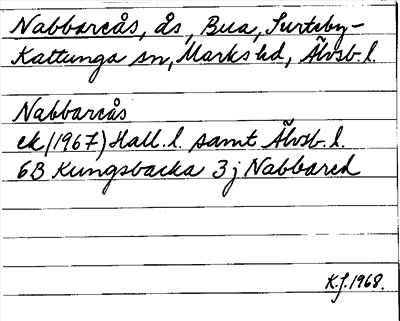 Nabbareås, ås, Bua, Surteby-
Kattunga sn, Marks hd, Älvsb. l.
Nabbareås
ek (1967) Hall. l. samt Älvsb. l.
6B Kungsbacka 3j Nabbared
K.J. 1968.